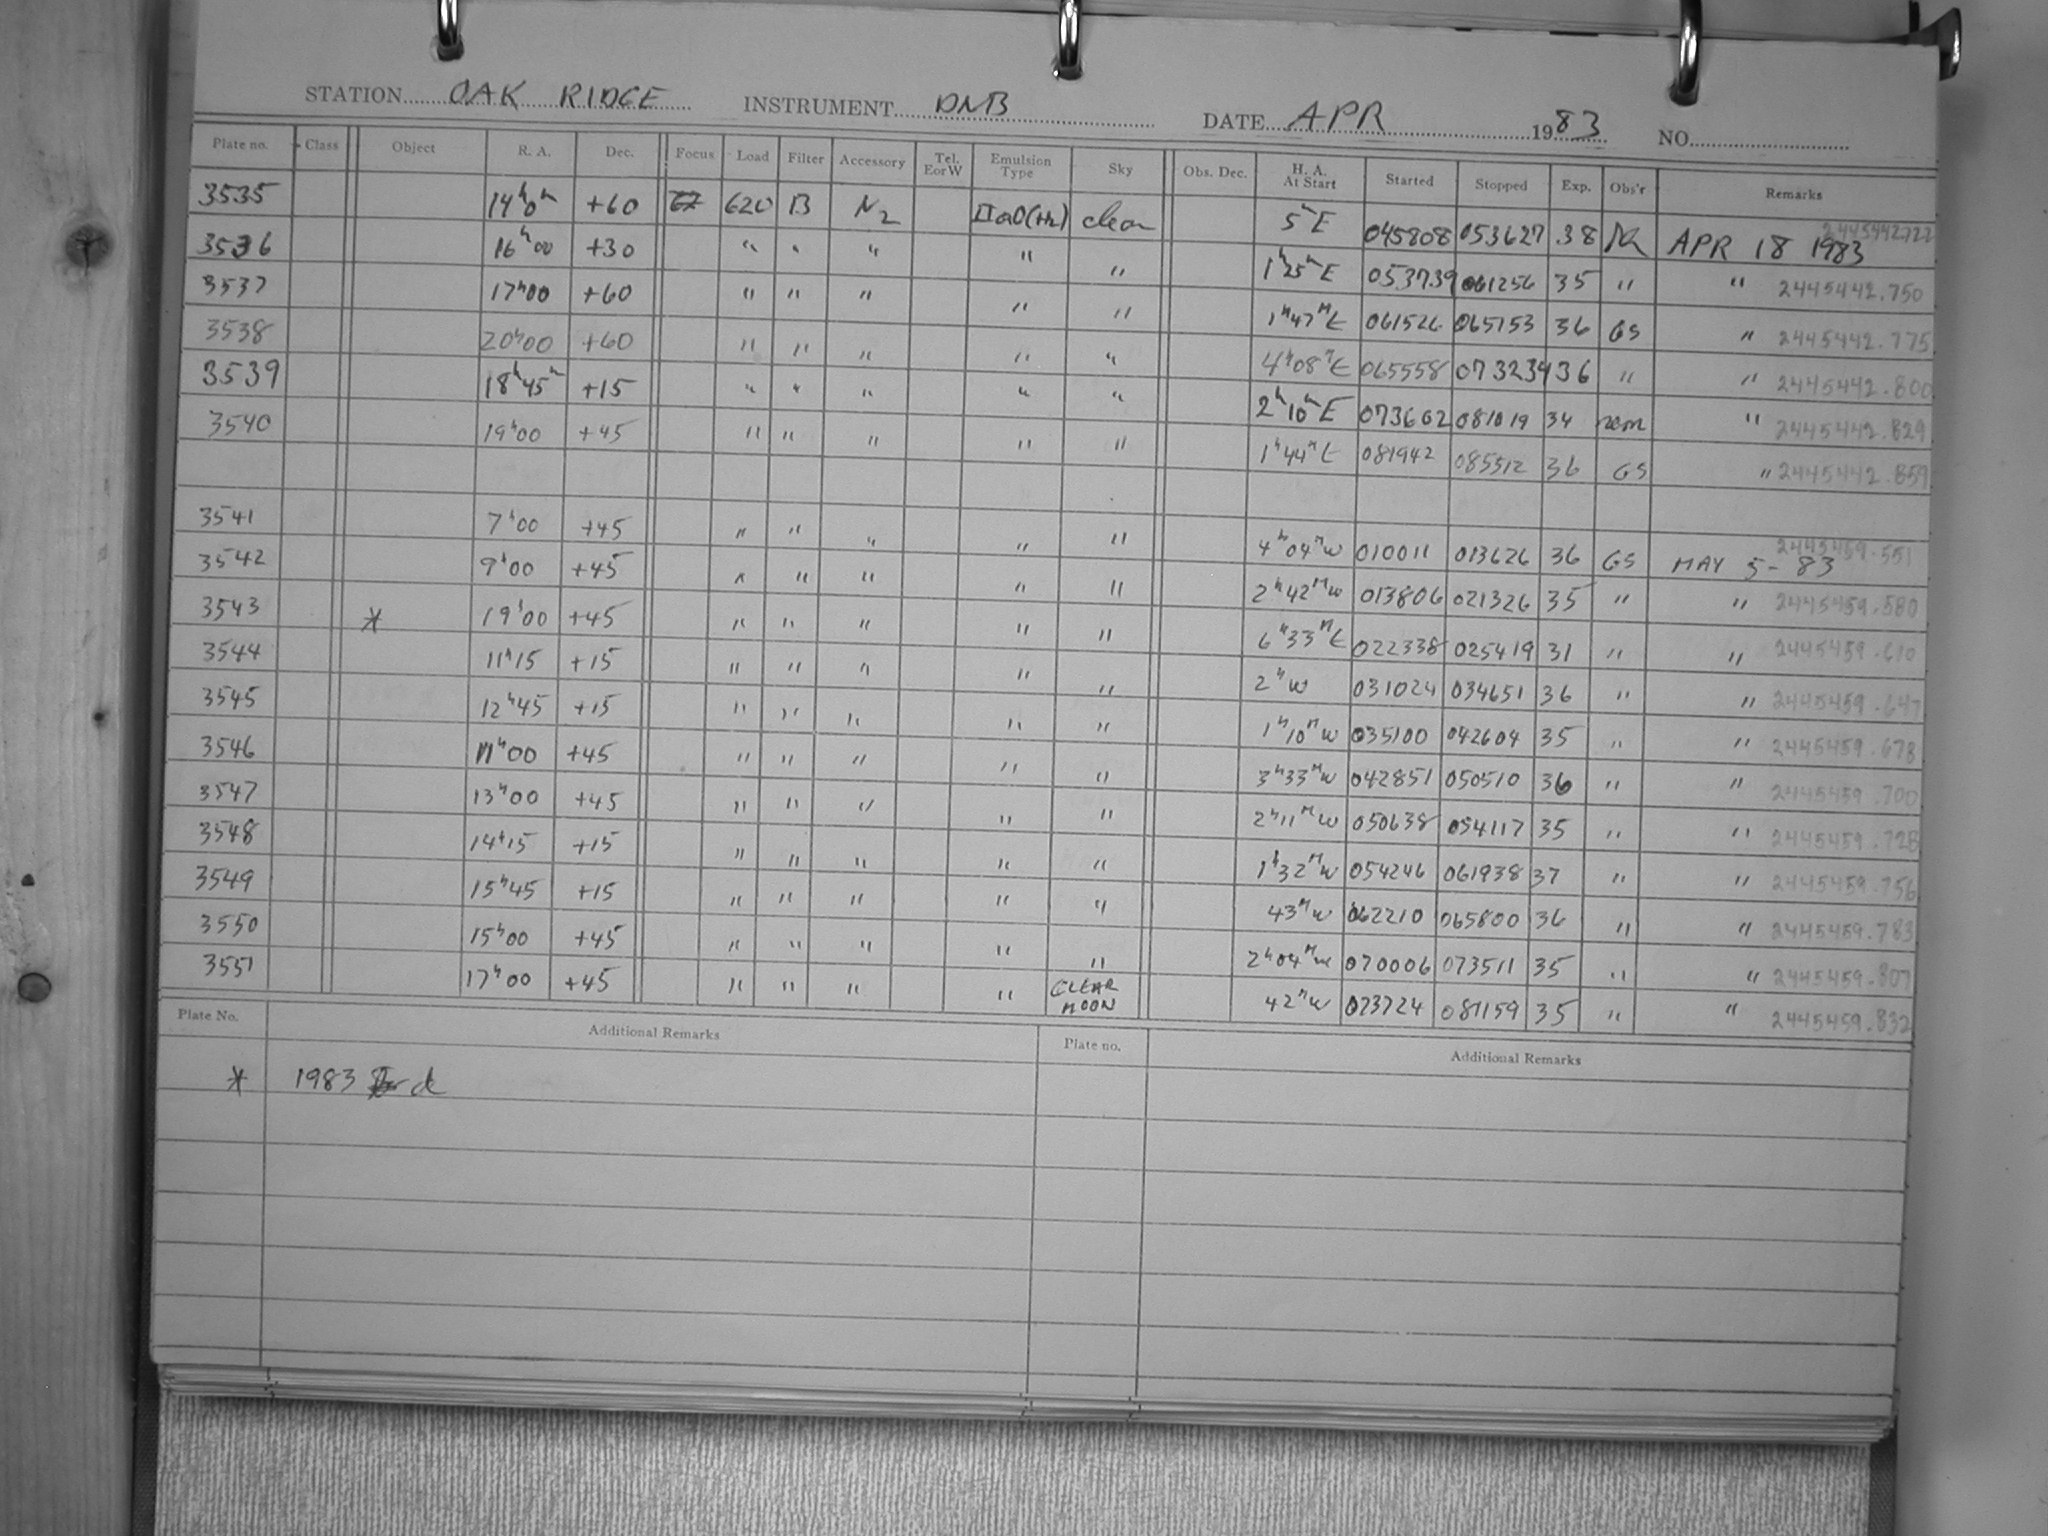 STATION OAK RIDGE INSTRUMENT DNB DATE APR 1983 NO.
Plate no. Class Object R. A. Dec. Focus Load Filter Accessory Tel. E or W Emulsion Type Sky Obs. Dec. H. A. At Start Started Stopped Exp. Obs'r Remarks
3535 14h0m +60 620 B N2 IIaO(H2) clear 5hE 045808 053627 38 APR 18 1983 2445442.722
3536 16h00 +30 " " " " " 1h25mE 053739 061256 35 " " 2445442.750
3537 17h00 +60 " " " " " 1h47mE 061526 065153 36 GS " 2445442.775
3538 20h00 +60 " " " " " 4h08mE 065558 073234 36 " " 2445442.800
3539 18h45m +15 " " " " " 2h10mE 073602 081019 34 " 2445442.829
3540 19h00 +45 " " " " " 1h44mE 081942 085512 36 GS " 2445442.859
3541 7h00 +45 " " " " " 4h04mW 010011 013626 36 GS MAY 5-83 2445459.551
3542 9h00 +45 " " " " " 2h42mW 013806 021326 35 " " 2445459.580
3543 * 19h00 +45 " " " " " 6h33mE 022338 025419 31 " " 2445459.610
3544 11h15 +15 " " " " " 2hW 031024 034651 36 " " 2445459.647
3545 12h45 +15 " " " " " 1h10mW 035100 042604 35 " " 2445459.678
3546 11h00 +45 " " " " " 3h33mW 042851 050510 36 " " 2445459.700
3547 13h00 +45 " " " " " 2h11mW 050638 054117 35 " " 2445459.728
3548 14h15 +15 " " " " " 1h32mW 054246 061938 37 " " 2445459.756
3549 15h45 +15 " " " " " 43mW 062210 065800 36 " " 2445459.783
3550 15h00 +45 " " " " " 2h04mW 070006 073511 35 " " 2445459.807
3551 17h00 +45 " " " " CLEAR MOON 42mW 073724 081159 35 " " 2445459.832
Plate No. Additional Remarks Plate no. Additional Remarks
* 1983 d